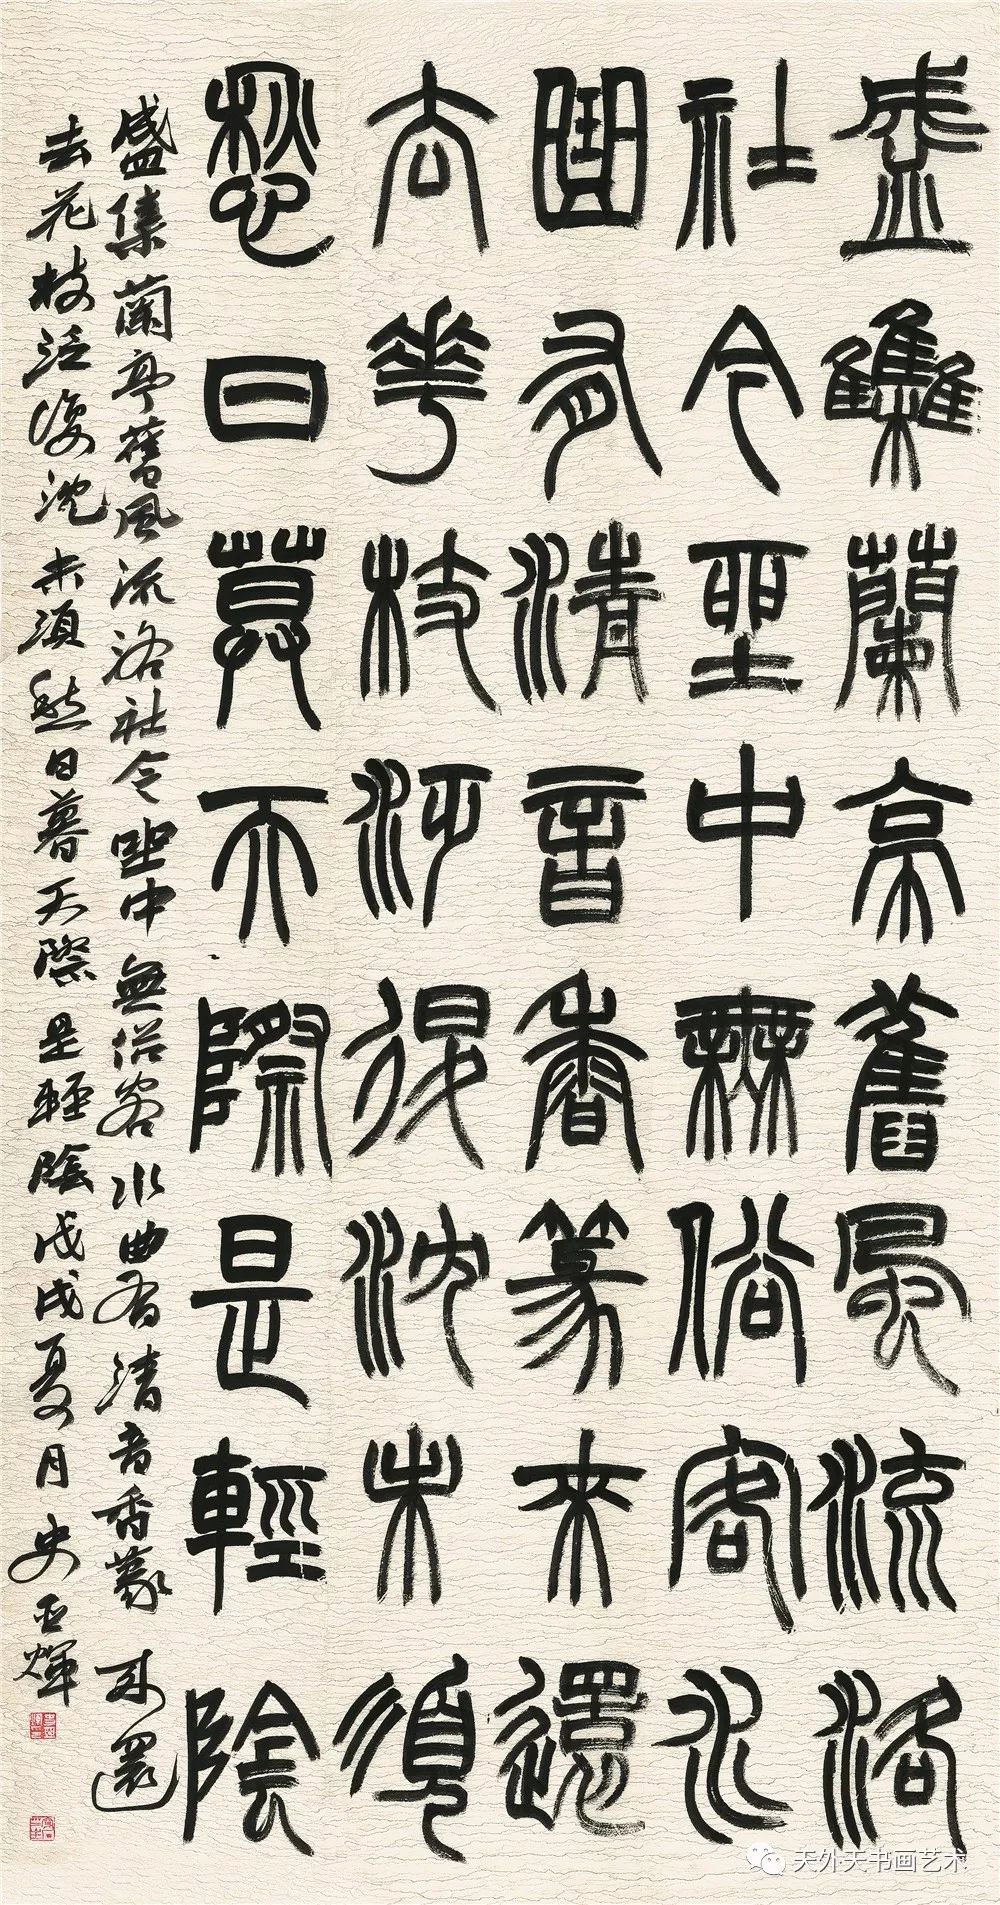 盛集蘭亭舊風流洛
社今坐中無俗客水
曲有清音香篆來還
去華枝汙復沈未須
愁日莫天際是輕陰
盛集蘭亭舊風流洛社今坐中無俗客水曲有清音香篆來還
去花枝泛復沈未須愁日暮天際是輕陰戊戌夏月史亞煇
天外天书画艺术